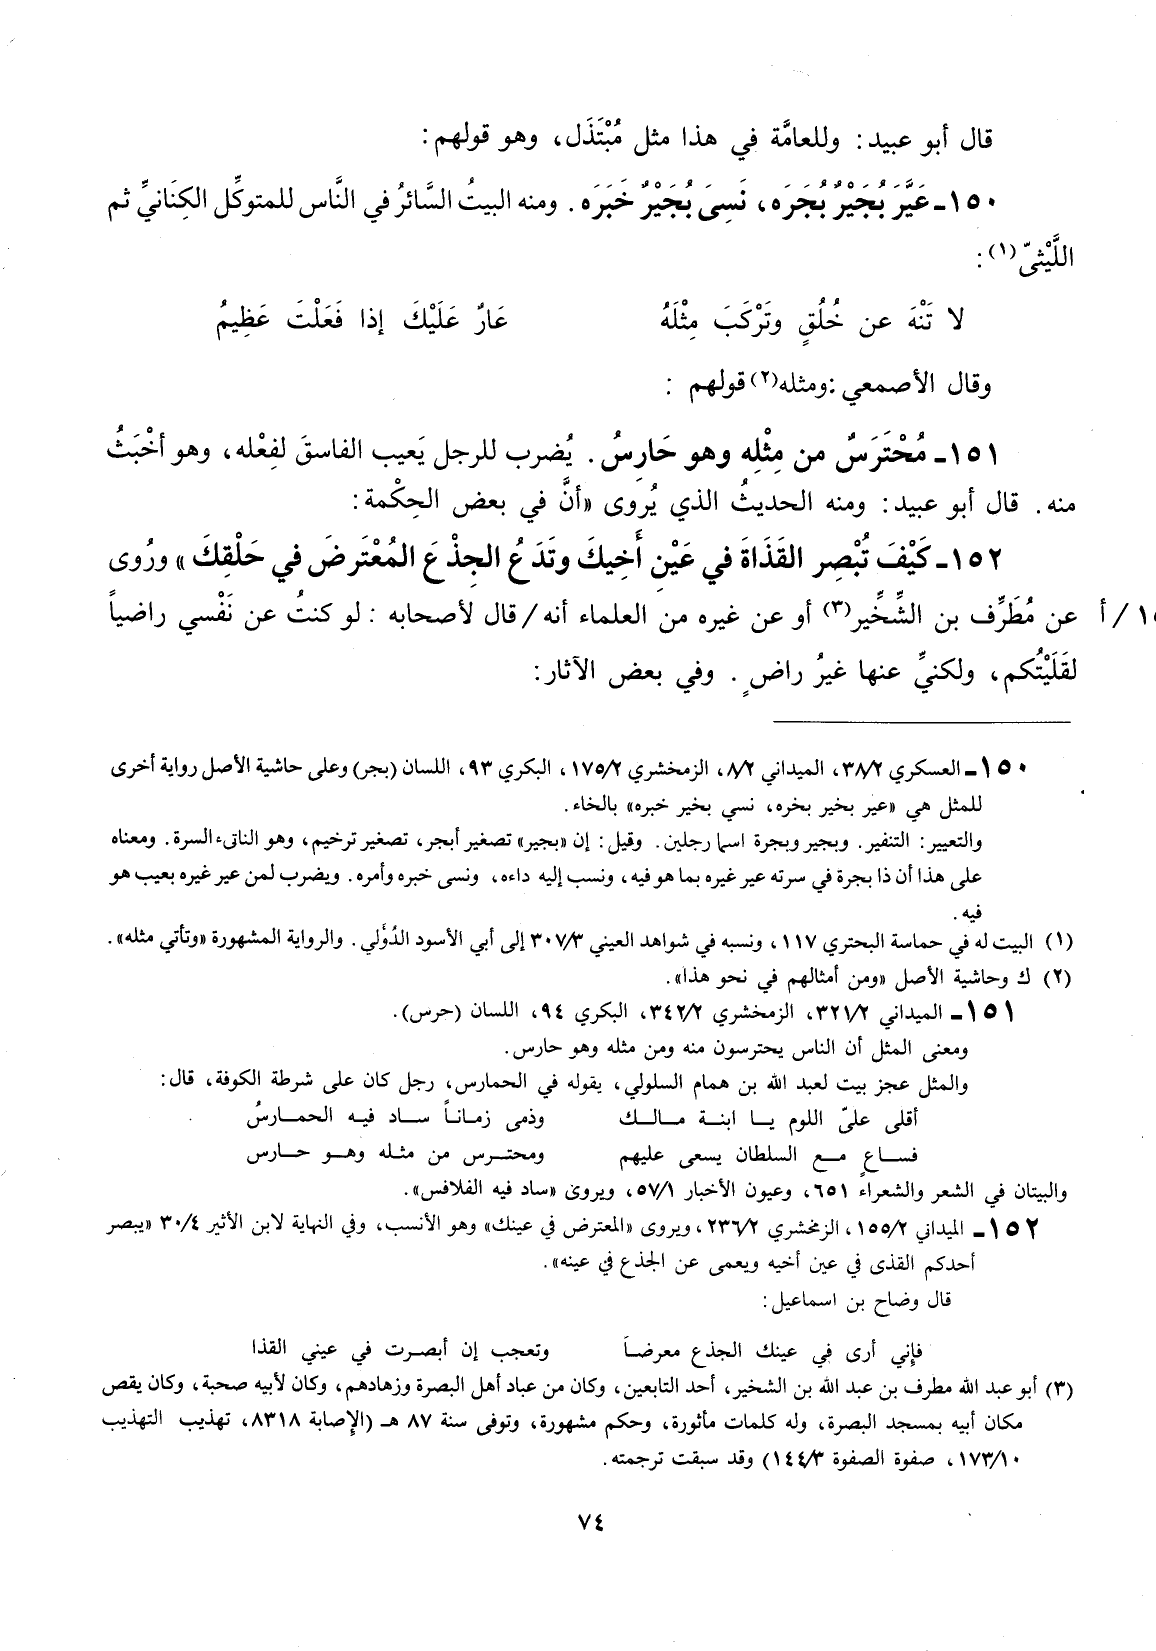 قال أبو عبيد: وللعامَّة في هذا مثل مُبْتَذَل، وهو قولهم:
١٥٠ـ عَيَّرَ بُجَيْرٌ بُجَرَه، نَسِىَ بُجَيْرٌ خَبَرَه. ومنه البيتُ السَّائرُ في النَّاس للمتوكِّل الكِنَانيِّ ثم
اللَّيْثيّ(١):
لا تَنْهَ عن خُلُقٍ وتَرْكَبَ مِثْلَهُ عَارٌ عَلَيْكَ إذا فَعَلْتَ عَظِيمُ
وقال الأصمعي: ومثله(٢) قولهم :
١٥١ـ مُحْتَرَسٌ من مِثْلِه وهو حَارِسُ. يُضرب للرجل يَعيب الفاسقَ لفِعْله، وهو أخْبَثُ
منه. قال أبو عبيد: ومنه الحديثُ الذي يُروى «أنَّ في بعض الحِكْمة:
١٥٢ـ كَيْفَ تُبْصِر القَذَاةَ في عَيْنِ أَخِيكَ وتَدَعُ الجِذْعَ المُعْتَرِضَ في حَلْقِكَ» ورُوى
عن مُطَرِّف بن الشِّخِّير(٣) أو عن غيره من العلماء أنه / قال لأصحابه : لو كنتُ عن نَفْسي راضياً ١٥/أ
لقَلَيْتُكم، ولكنيِّ عنها غيرُ راضٍ. وفي بعض الآثار:
١٥٠ـ العسكري ٣٨/٢، الميداني ٨/٢، الزمخشري ١٧٥/٢، البكري ٩٣، اللسان (بجر) وعلى حاشية الأصل رواية أخرى
للمثل هي «عير بخير بخره، نسي بخير خبره» بالخاء.
والتعيير: التنفير. وبجير وبجرة اسما رجلين. وقيل: إن «بجير» تصغير أبجر، تصغير ترخيم، وهو الناتىء السرة. ومعناه
على هذا أن ذا بجرة في سرته عير غيره بما هو فيه، ونسب إليه داءه، ونسى خبره وأمره. ويضرب لمن عير غيره بعيب هو
فيه.
(١) البيت له في حماسة البحتري ١١٧، ونسبه في شواهد العيني ٣٠٧/٣ إلى أبي الأسود الدُؤلي. والرواية المشهورة «وتأتي مثله».
(٢) ك وحاشية الأصل «ومن أمثالهم في نحو هذا».
١٥١ـ الميداني ٣٢١/٢، الزمخشري ٣٤٢/٢، البكري ٩٤، اللسان (حرس).
ومعنى المثل أن الناس يحترسون منه ومن مثله وهو حارس.
والمثل عجز بيت لعبد الله بن همام السلولي، يقوله في الحمارس، رجل كان على شرطة الكوفة، قال:
أقلى علىّ اللوم يـا ابنـة مـالـك وذمى زمـانـاً سـاد فيـه الحمـارسُ
فسـاعٍ مـع السلطان يسعى عليهم ومحترس من مثلـه وهـو حـارس
والبيتان في الشعر والشعراء ٦٥١، وعيون الأخبار ٥٧/١، ويروى «ساد فيه الفلافس».
١٥٢ـ الميداني ١٥٥/٢، الزمخشري ٢٣٦/٢، ويروى «المعترض في عينك» وهو الأنسب، وفي النهاية لابن الأثير ٣٠/٤ «يبصر
أحدكم القذى في عين أخيه ويعمى عن الجذع في عينه».
قال وضاح بن اسماعيل:
فإني أرى في عينك الجذع معرضاً وتعجب إن أبصرت في عيني القذا
(٣) أبو عبد الله مطرف بن عبد الله بن الشخير، أحد التابعين، وكان من عباد أهل البصرة وزهادهم، وكان لأبيه صحبة، وكان يقص
مكان أبيه بمسجد البصرة، وله كلمات مأثورة، وحكم مشهورة، وتوفى سنة ٨٧ هـ (الإصابة ٨٣١٨، تهذيب التهذيب
١٧٣/١٠، صفوة الصفوة ١٤٤/٣) وقد سبقت ترجمته.
٧٤